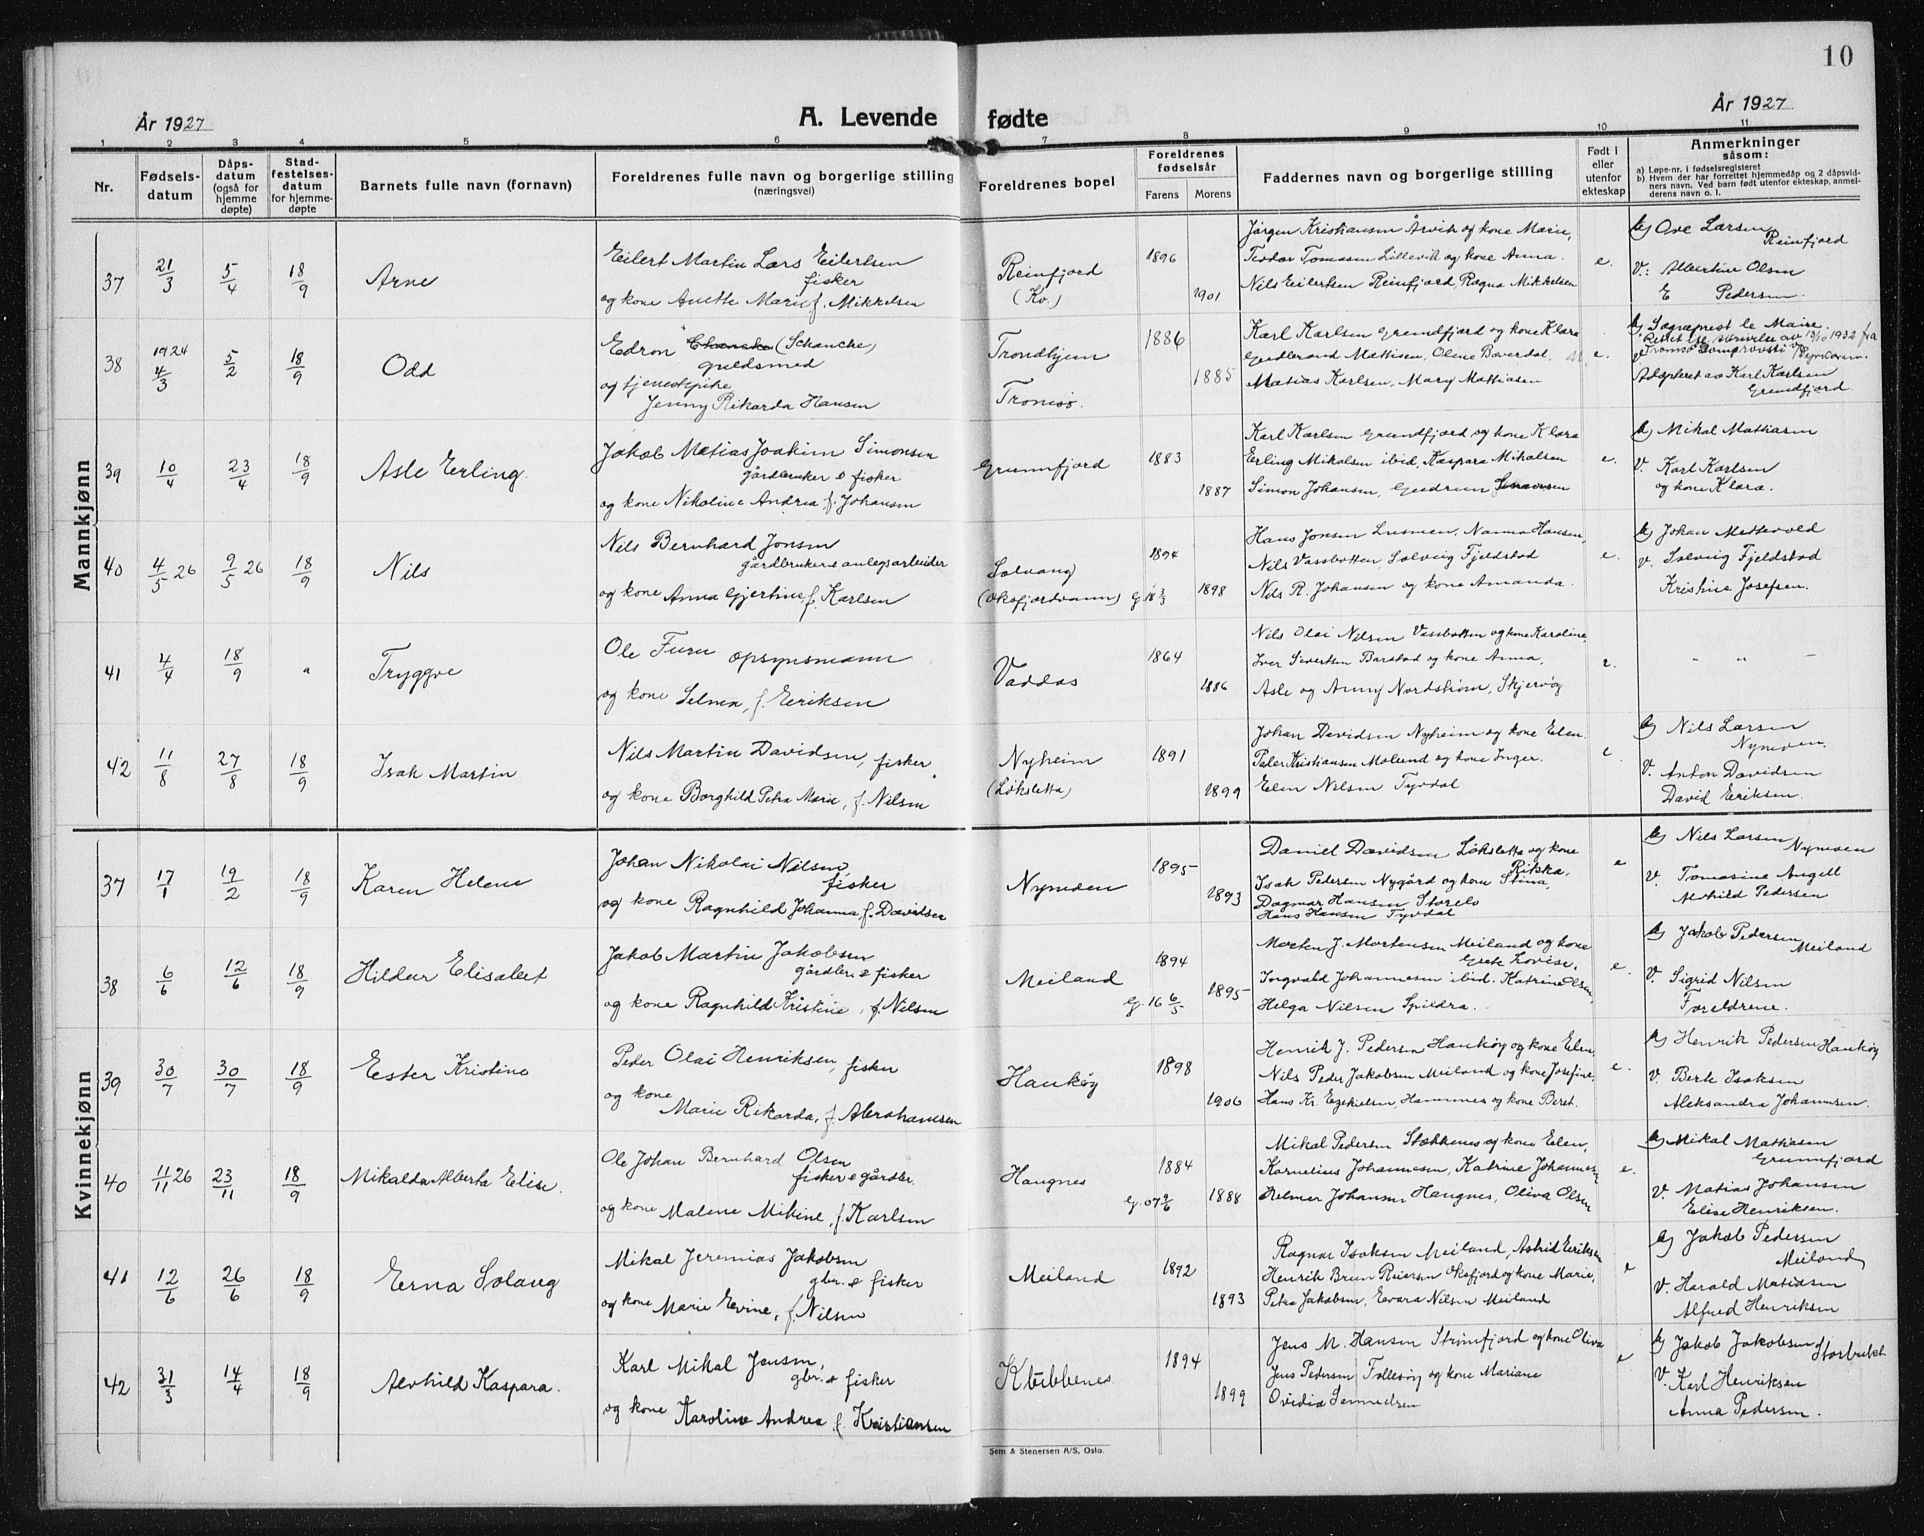 10
År 1927
A. Levende fødte
År 1927
1 2 3 4 5 6 7 8 9 10 11
Nr.
Fødsels-
datum
Dåps-
datum
(også for
hjemme
døpte)
Stad-
festelses-
datum
for hjemme-
døpte
Barnets fulle navn (fornavn)
Foreldrenes fulle navn og borgerlige stilling
(næringsvei)
Foreldrenes bopel
Foreldrenes
fødselsår
Farens Morens
Faddernes navn og borgerlige stilling
Født i
eller
utenfor
ekteskap
Anmerkninger
såsom:
a) Løpe-nr. i fødselsregisteret
b) Hvem der har forrettet hjemmedåp og 2 dåpsvid-
ners navn. Ved barn født utenfor ekteskap, anmel-
derens navn o. l.
Mannkjønn
37 21/3 5/4 18/9 Arne
Eilert Martin Lars Eilertsen
fisker
og kone Anette Marie f. Mikkelsen
Reinfjord
(Kv.)
1896
1901
Jørgen Kristiansen Årvik og kone Marie,
Teodor Tomasen Lillevik og kone Anna.
Nils Eilertsen Reinfjord Ragna Mikkelsen
e.
b) Ove Larsen
Reinfjord
V.: Albertine Olsen
E Pedersen.
38 1924 4/3 5/2 18/9 Odd
Edron Chanske (Schancke)
guldsmed
og tjenestepike
Jenny Rikarda Hansen
Trondhjem
Tromsø.
1886
1885
Karl Karlsen Grundfjord og kone Klara
Gudbrand Mattisen, Oline Baverdal.
Matias Karlsen, Mary Mattiasen
e.
b) Sogneprest le Maire.
Rettelse, skrivelse av 13/10 1932 fra
Tromsø Domprovsti
Adopteret av Karl Karlsen
Grundfjord.
39 10/4 23/4 18/9 Asle Erling.
Jakob Matias Joakim Simonsen
gårdbruker & fisker
og kone Nikoline Andrea f. Johansen
Grunnfjord
1883
1887
Karl Karlsen Grundfjord og kone Klara
Erling Mikalsen ibid, Kaspara Mikalsen
Simon Johansen, Gudrun Johansen
e.
b) Mikal Mathiasen
V. Karl Karlsen
og kone Klara.
40 4/5 26 9/5 26 18/9 Nils
Nils Bernhard Jonsen
gårdbruker & anlegsarbeider
og kone Anna Gjertine f. Karlsen
Solvang
(Oksfjordvann) G 18 3/3
1894
1898
Hans Jonsen Lusmen, Nanna Hansen,
Nils Vassbotten Solveig Fjeldstad
Nils R. Johansen og kone Amanda.
e.
b) Johan Mettevold
V. Solveig Fjeldstad
Kristine Josefsen.
41 4/4 18/9 " Tryggve
Ole Furu opsynsmann
og kone Selma, f. Eriksen
Vaddas
1864
1886
Nils Olai Nilsen Vassbotten og kone Karoline,
Iver Sivertsen Barstad og kone Anna,
Asle og Anny Nordstrøm, Skjervøy
e.
" " "
42 11/8 27/8 18/9 Isak Martin
Nils Martin Davidsen, fisker
og kone Borghild Petra Marie, f. Nilsen
Nyheim
(Løksletta)
1891
1899
Johan Davidsen Nyheim og kone Elen.
Peder Kristiansen Moland og kone Inger.
Elen Nilsen Tyvdal
e
b) Nils Larsen
Nymoen.
V. Anton Davidsen
David Eriksen.
Kvinnekjønn
37 17/1 19/2 18/9 Karen Helene
Johan Nikolai Nilsen,
fisker
og kone Ragnhild Johanna f. Davidsen
Nymoen
1895
1893
Daniel Davidsen Løksletta og kone
Rikka,
Isak Pedersen Nygård og kone Stina,
Dagmar Hansen Storelv
Hans Hansen Tyvdal
e
b) Nils Larsen
Nymoen
V. Tomasine Angell
Alvhild Pedersen
38 6/6 12/6 18/9 Hildur Elisabet
Jakob Martin Jakobsen
gårdbr. & fisker
og kone Ragnhild Kristine, f. Nilsen
Meiland
G. 16 6/5
1894
1895
Morten J. Mortensen Meiland og kone
Grete Lovise,
Ingvald Johannesen ibid. Katrine Olsen,
Helga Nilsen Spildra.
e.
b) Jakob Pedersen
Meiland
V. Sigrid Nilsen
Foreldrene.
39 30/7 30/7 18/9 Ester Kristine
Peder Olai Henriksen, fisker
og kone
Marie Rikarda, f. Abrahamsen
Haukøy
1898
1906
Henrik J. Pedersen Haukøy og kone Elen,
Nils Peder Jakobsen Meiland og kone Josefine.
Hans Kr. Ezekielsen, Hamnnes og kone Beret.
e.
b) Henrik Pedersen Haukøy
V. Berte Isaksen
Aleksandra Johannesen.
40 11/11 26 23/11 18/9 Mikalda Alberta Elise.
Ole Johan Bernhard Olsen
fisker & gårdbr.
og kone Malene Mikine, f. Karlsen
Haugnes
G. 07 9/6
1884
1888
Mikal Pedersen Stakkenes og kone Elen,
Kornelius Johannesen, Katrine Johannesen
Helmer Johansen Haugnes, Oliva Olsen
e.
b) Mikal Mathiasen
Grunnfjord
V. Matias Johansen
Elise Henriksen.
41 12/6 26/6 18/9 Erna Solaug
Mikal Jeremias Jakobsen
gbr. & fisker
og kone Marie Evine, f. Nilsen
Meiland
1892
1893
Ragnar Isaksen Meiland, Astrid Eriksen
Henrik Brun Reiersen Oksfjord og kone Marie,
Petra Jakobsen, Edvara Nilsen Meiland
e
b) Jakob Pedersen
Meiland
V. Harald Matissen
Alfred Henriksen
42 31/3 14/4 18/9 Alvhild Kaspara.
Karl Mikal Jensen,
gbr. & fisker
og kone Karoline Andrea f. Kristiansen
Klubbenes
1894
1899
Jens M. Hansen Straumfjord og kone Oliva
Jens Pedersen Follesøy og kone Mariane
Ovidia Samuelsen
e
b) Jakob Jakobsen
Storbukt
V. Karl Henriksen
Anna Pedersen.
Sem & Stenersen A/S, Oslo.